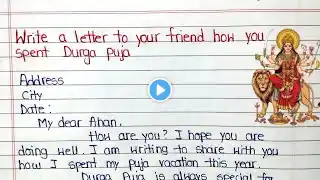 Write a letter to your friend how you
spent Durga Puja
Address
City
Date:
My dear Ahan.
How are you? I hope you are
doing well. I am writing to share with you
how I spent my puja vacation this year.
Durga Puja is always special for